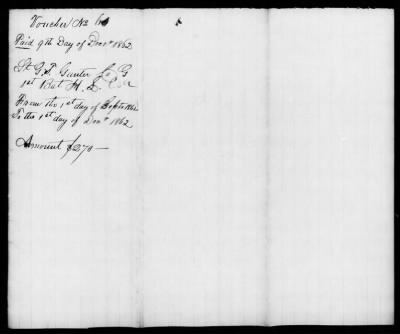 Voucher No
Paid 9th Day of Decr 1862
Lt G. T. Gunter Co G
1st Bat H.
From the 1st day of Septr 1862
To the 1st day of Decr 1862
Amount $270 —